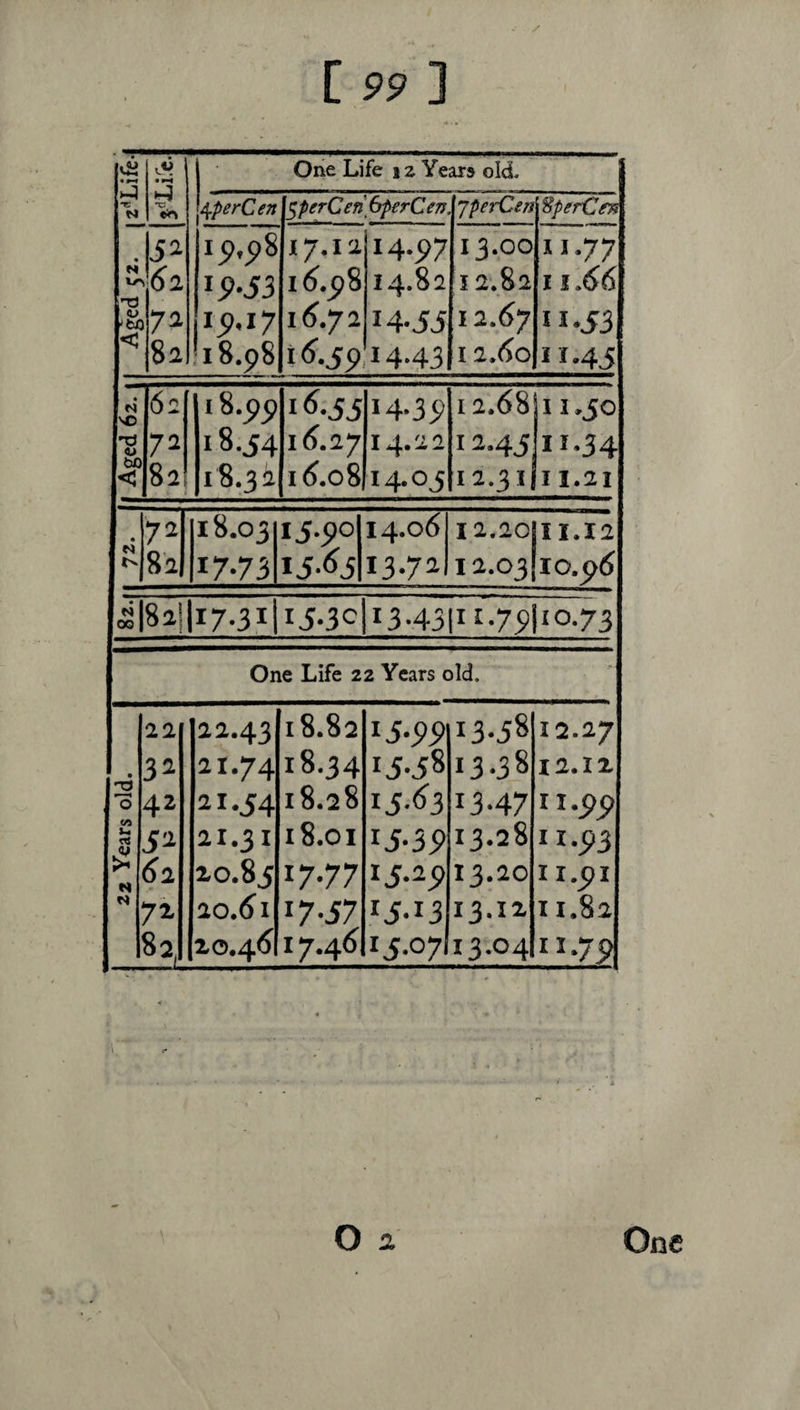 [ 99 ]
2d Life. 3d Life. One Life 12 Years old.
4perCen 5perCen 6perCen. 7perCen 8perCen
Aged 52. 52 19.98 17.12 14.97 13.00 11.77
62 19.53 16.98 14.82 12.82 11.66
72 19.17 16.72 14.55 12.67 11.53
82 18.98 16.59 14.43 12.60 11.45
Aged 62. 62 18.99 16.55 14.39 12.68 11.50
72 18.54 16.27 14.22 12.45 11.34
82 18.32 16.08 14.05 12.31 11.21
72. 72 18.03 15.90 14.06 12.20 11.12
82 17.73 15.65 13.72 12.03 10.96
82. 82 17.31 15.30 13.43 11.79 10.73
One Life 22 Years old.
22 Years old. 22 22.43 18.82 15.99 13.58 12.27
32 21.74 18.34 15.58 13.38 12.12
42 21.54 18.28 15.63 13.47 11.99
52 21.31 18.01 15.39 13.28 11.93
62 20.85 17.77 15.29 13.20 11.91
72 20.61 17.57 15.13 13.12 11.82
82 20.46 17.46 15.07 13.04 11.79
O 2 One